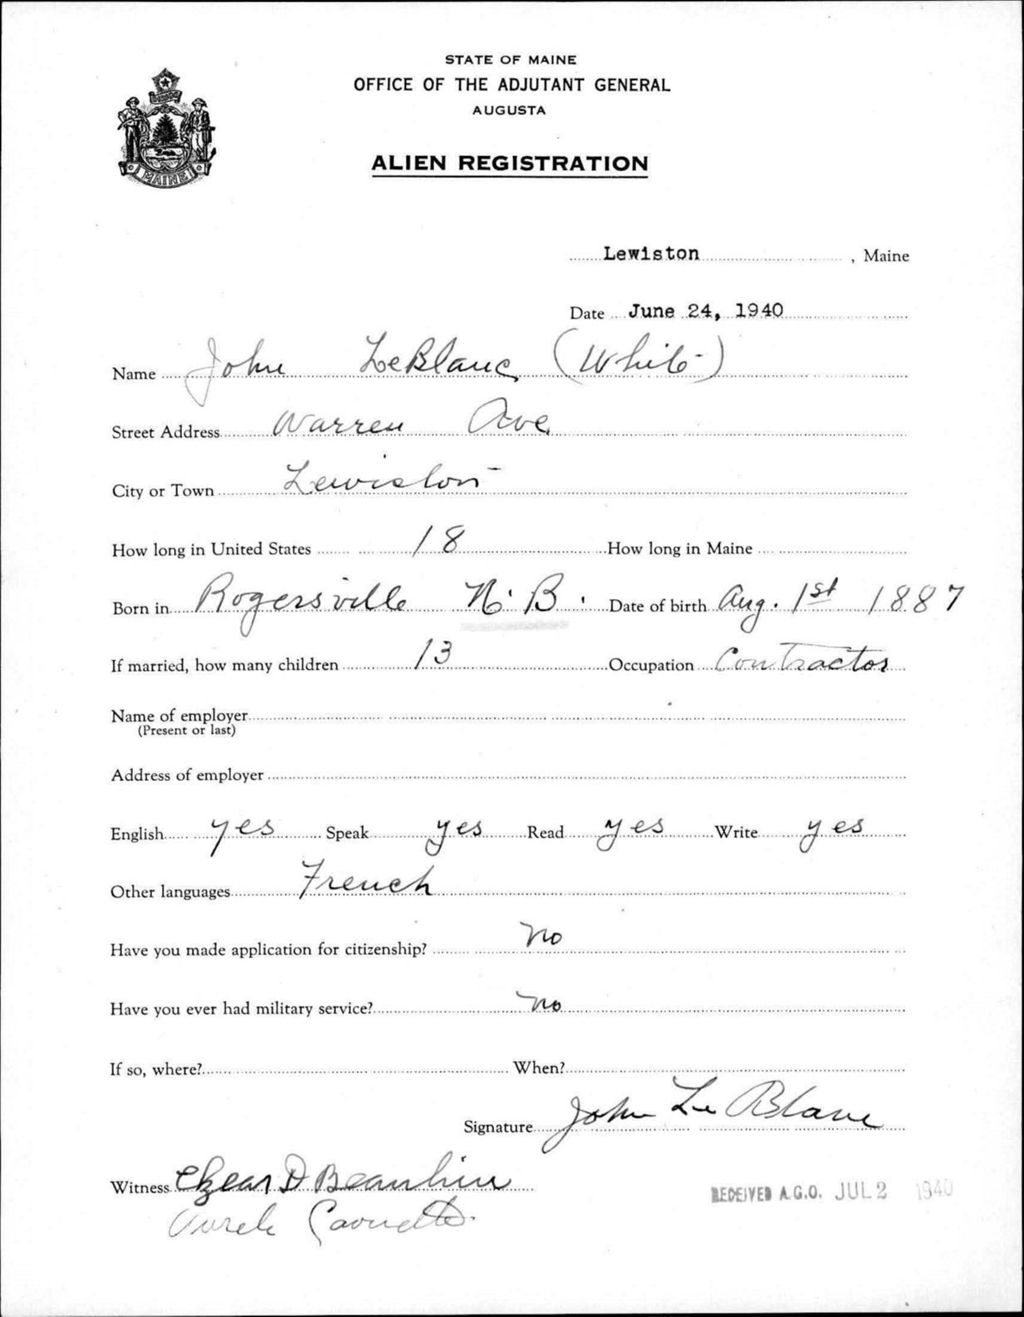 STATE OF MAINE
OFFICE OF THE ADJUTANT GENERAL
AUGUSTA
ALIEN REGISTRATION
MAINE
Lewiston, Maine
Date June 24, 1940
Name John LeBlanc (White)
Street Address Warren Ave
City or Town Lewiston
How long in United States 18 How long in Maine
Born in Rogersville N.B. Date of birth Aug. 1st 1887
If married, how many children 13 Occupation Contractor
Name of employer
(Present or last)
Address of employer
English yes Speak yes Read yes Write yes
Other languages French
Have you made application for citizenship? no
Have you ever had military service? no
If so, where? When?
Signature John Le Blanc
Witness D
RECEIVED A.G.O. JUL 2 1940